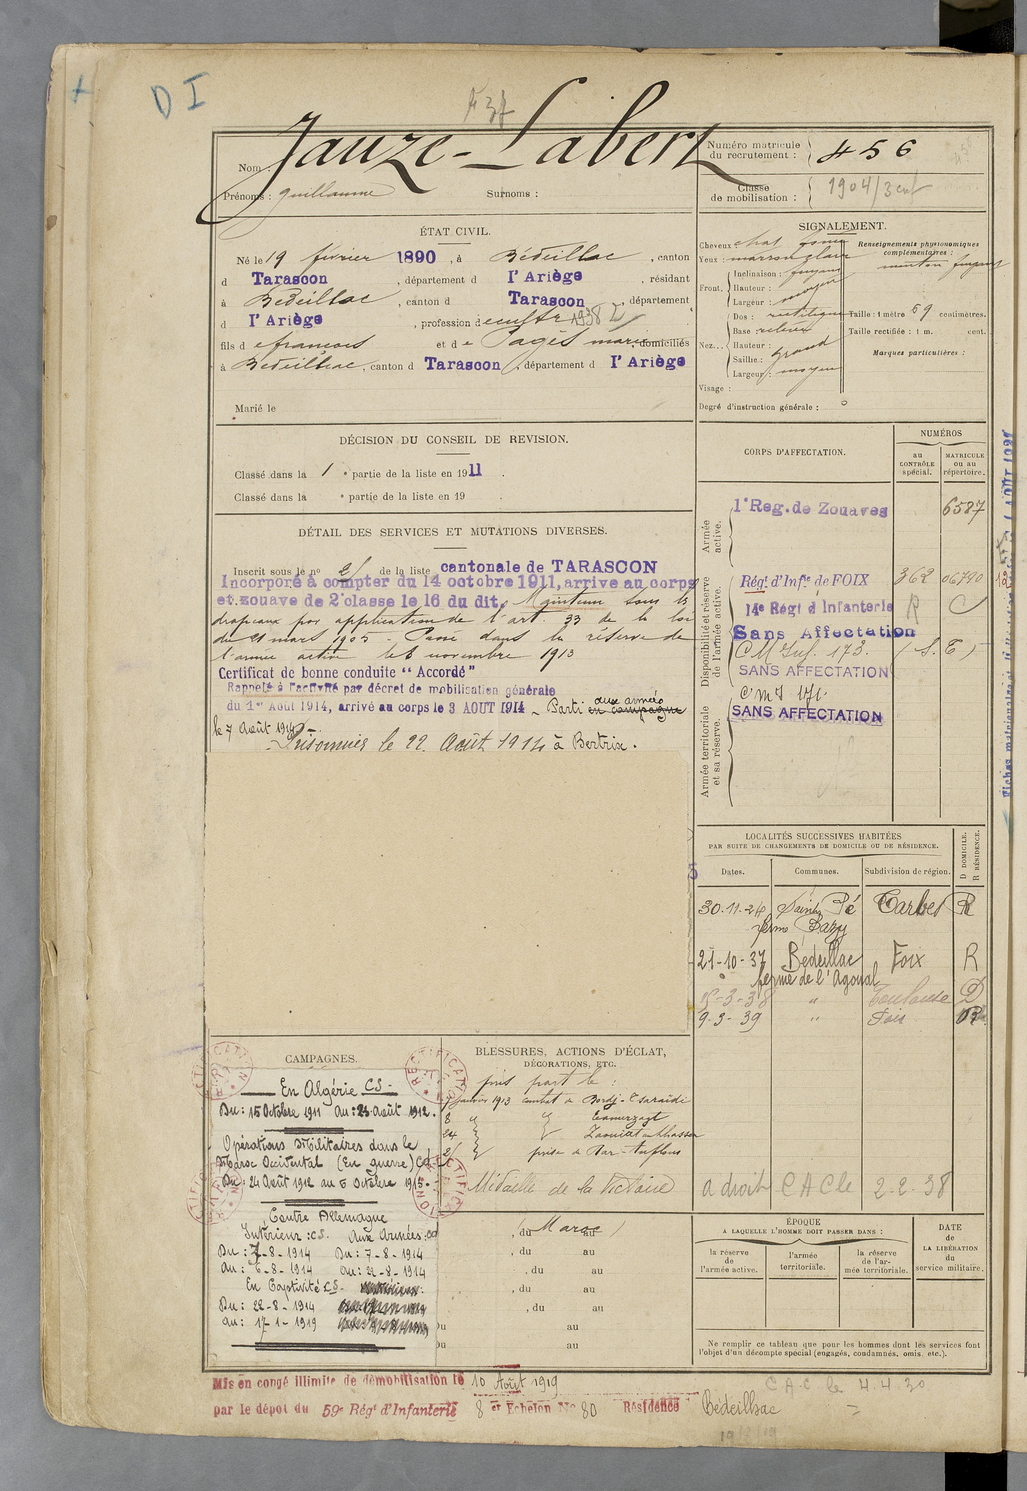 D I
Jauze-Labert
Nom :
Prénoms : Guillaume
Surnoms :
Numéro matricule du recrutement : 456
Classe de mobilisation : 1904/3 enf
ÉTAT CIVIL.
Né le 19 février 1890, à Bédeillac, canton
d Tarascon, département d l'Ariège, résidant
à Bédeillac, canton d Tarascon, département
d l'Ariège, profession d
fils d e françois et d e Pagès marie, domiciliés
à Bédeillac, canton d Tarascon, département d l'Ariège
Marié le
DÉCISION DU CONSEIL DE REVISION.
Classé dans la 1e partie de la liste en 1911.
Classé dans la e partie de la liste en 19 .
DÉTAIL DES SERVICES ET MUTATIONS DIVERSES.
Inscrit sous le no de la liste cantonale de TARASCON
Incorporé à compter du 14 octobre 1911, arrive au corps
et zouave de 2e classe le 16 du dit. Maintenu sous les
drapeaux par application de l'art. 33 de la loi
du 21 mars 1905 - Passé dans la réserve de
l'armée active le 8 novembre 1913
Certificat de bonne conduite “ Accordé ”
Rappelé à l'activité par décret de mobilisation générale
du 1er Août 1914, arrivé au corps le 3 AOUT 1914 - Parti aux armées en campagne
le 7 Août 1914
Prisonnier le 22 Août 1914 à Bertrix.
SIGNALEMENT.
Cheveux : chat.
Yeux : marron clair
Front.
Inclinaison : fuyant
Hauteur :
Largeur : moyen
Nez...
Dos : rectiligne
Base : relevée
Hauteur :
Saillie : grand
Largeur : moyen
Visage :
Degré d'instruction générale :
Renseignements physionomiques complémentaires :
menton fuyant
Taille : 1 mètre 59 centimètres.
Taille rectifiée : 1 m. cent.
Marques particulières :
CORPS D'AFFECTATION.
NUMÉROS
au CONTRÔLE spécial.
MATRICULE ou au répertoire.
Armée active.
1er Reg. de Zouaves 6587
Disponibilité et réserve de l'armée active.
Régt d'Infie de FOIX 362 06790
14e Régt d'Infanterie R C
Sans Affectation
C M Inf. 173. (S. E)
SANS AFFECTATION
Armée territoriale et sa réserve.
C M I 171
SANS AFFECTATION
LOCALITÉS SUCCESSIVES HABITÉES
PAR SUITE DE CHANGEMENTS DE DOMICILE OU DE RÉSIDENCE.
Dates.
Communes.
Subdivision de région.
D DOMICILE. R RÉSIDENCE.
30-11-24 Saint Pé Tarbes R
ferme Bazy
21-10-37 Bédeillac Foix R
ferme de l'Agoual
15-3-38 " Toulouse D
9-3-39 " Foix R
CAMPAGNES.
En Algérie CS -
Du : 15 Octobre 1911 Au : 23 août 1912.
Opérations Militaires dans le
Maroc Occidental (En guerre) CD
Du : 24 Août 1912 au 5 Octobre 1913.
Contre Allemagne
Intérieur : CS. Aux Armées : CD
Du : 3-8-1914 Du : 7-8-1914
Au : 6-8-1914 Au : 21-8-1914
En Captivité CS.
Du : 22-8-1914
Au : 17-1-1919
BLESSURES, ACTIONS D'ÉCLAT,
DÉCORATIONS, ETC.
pris part le :
7 janvier 1913 combat de Bordj-
8
24
25 prise de Dar-Anflous
Médaille de la Victoire
a droit CAC le 2-2-38
(du Maroc au )
, du au
, du au
, du au
, du au
Du au
Du au
ÉPOQUE
À LAQUELLE L'HOMME DOIT PASSER DANS :
la réserve de l'armée active.
l'armée territoriale.
la réserve de l'armée territoriale.
DATE de LA LIBÉRATION du service militaire.
Ne remplir ce tableau que pour les hommes dont les services font
l'objet d'un décompte spécial (engagés, condamnés, omis, etc.).
Mis en congé illimité de démobilisation le 10 Août 1919
par le dépôt du 59e Régt d'Infanterie 8e Echelon No 80 Résidence Bédeilhac
C.A.C le 4.4.30